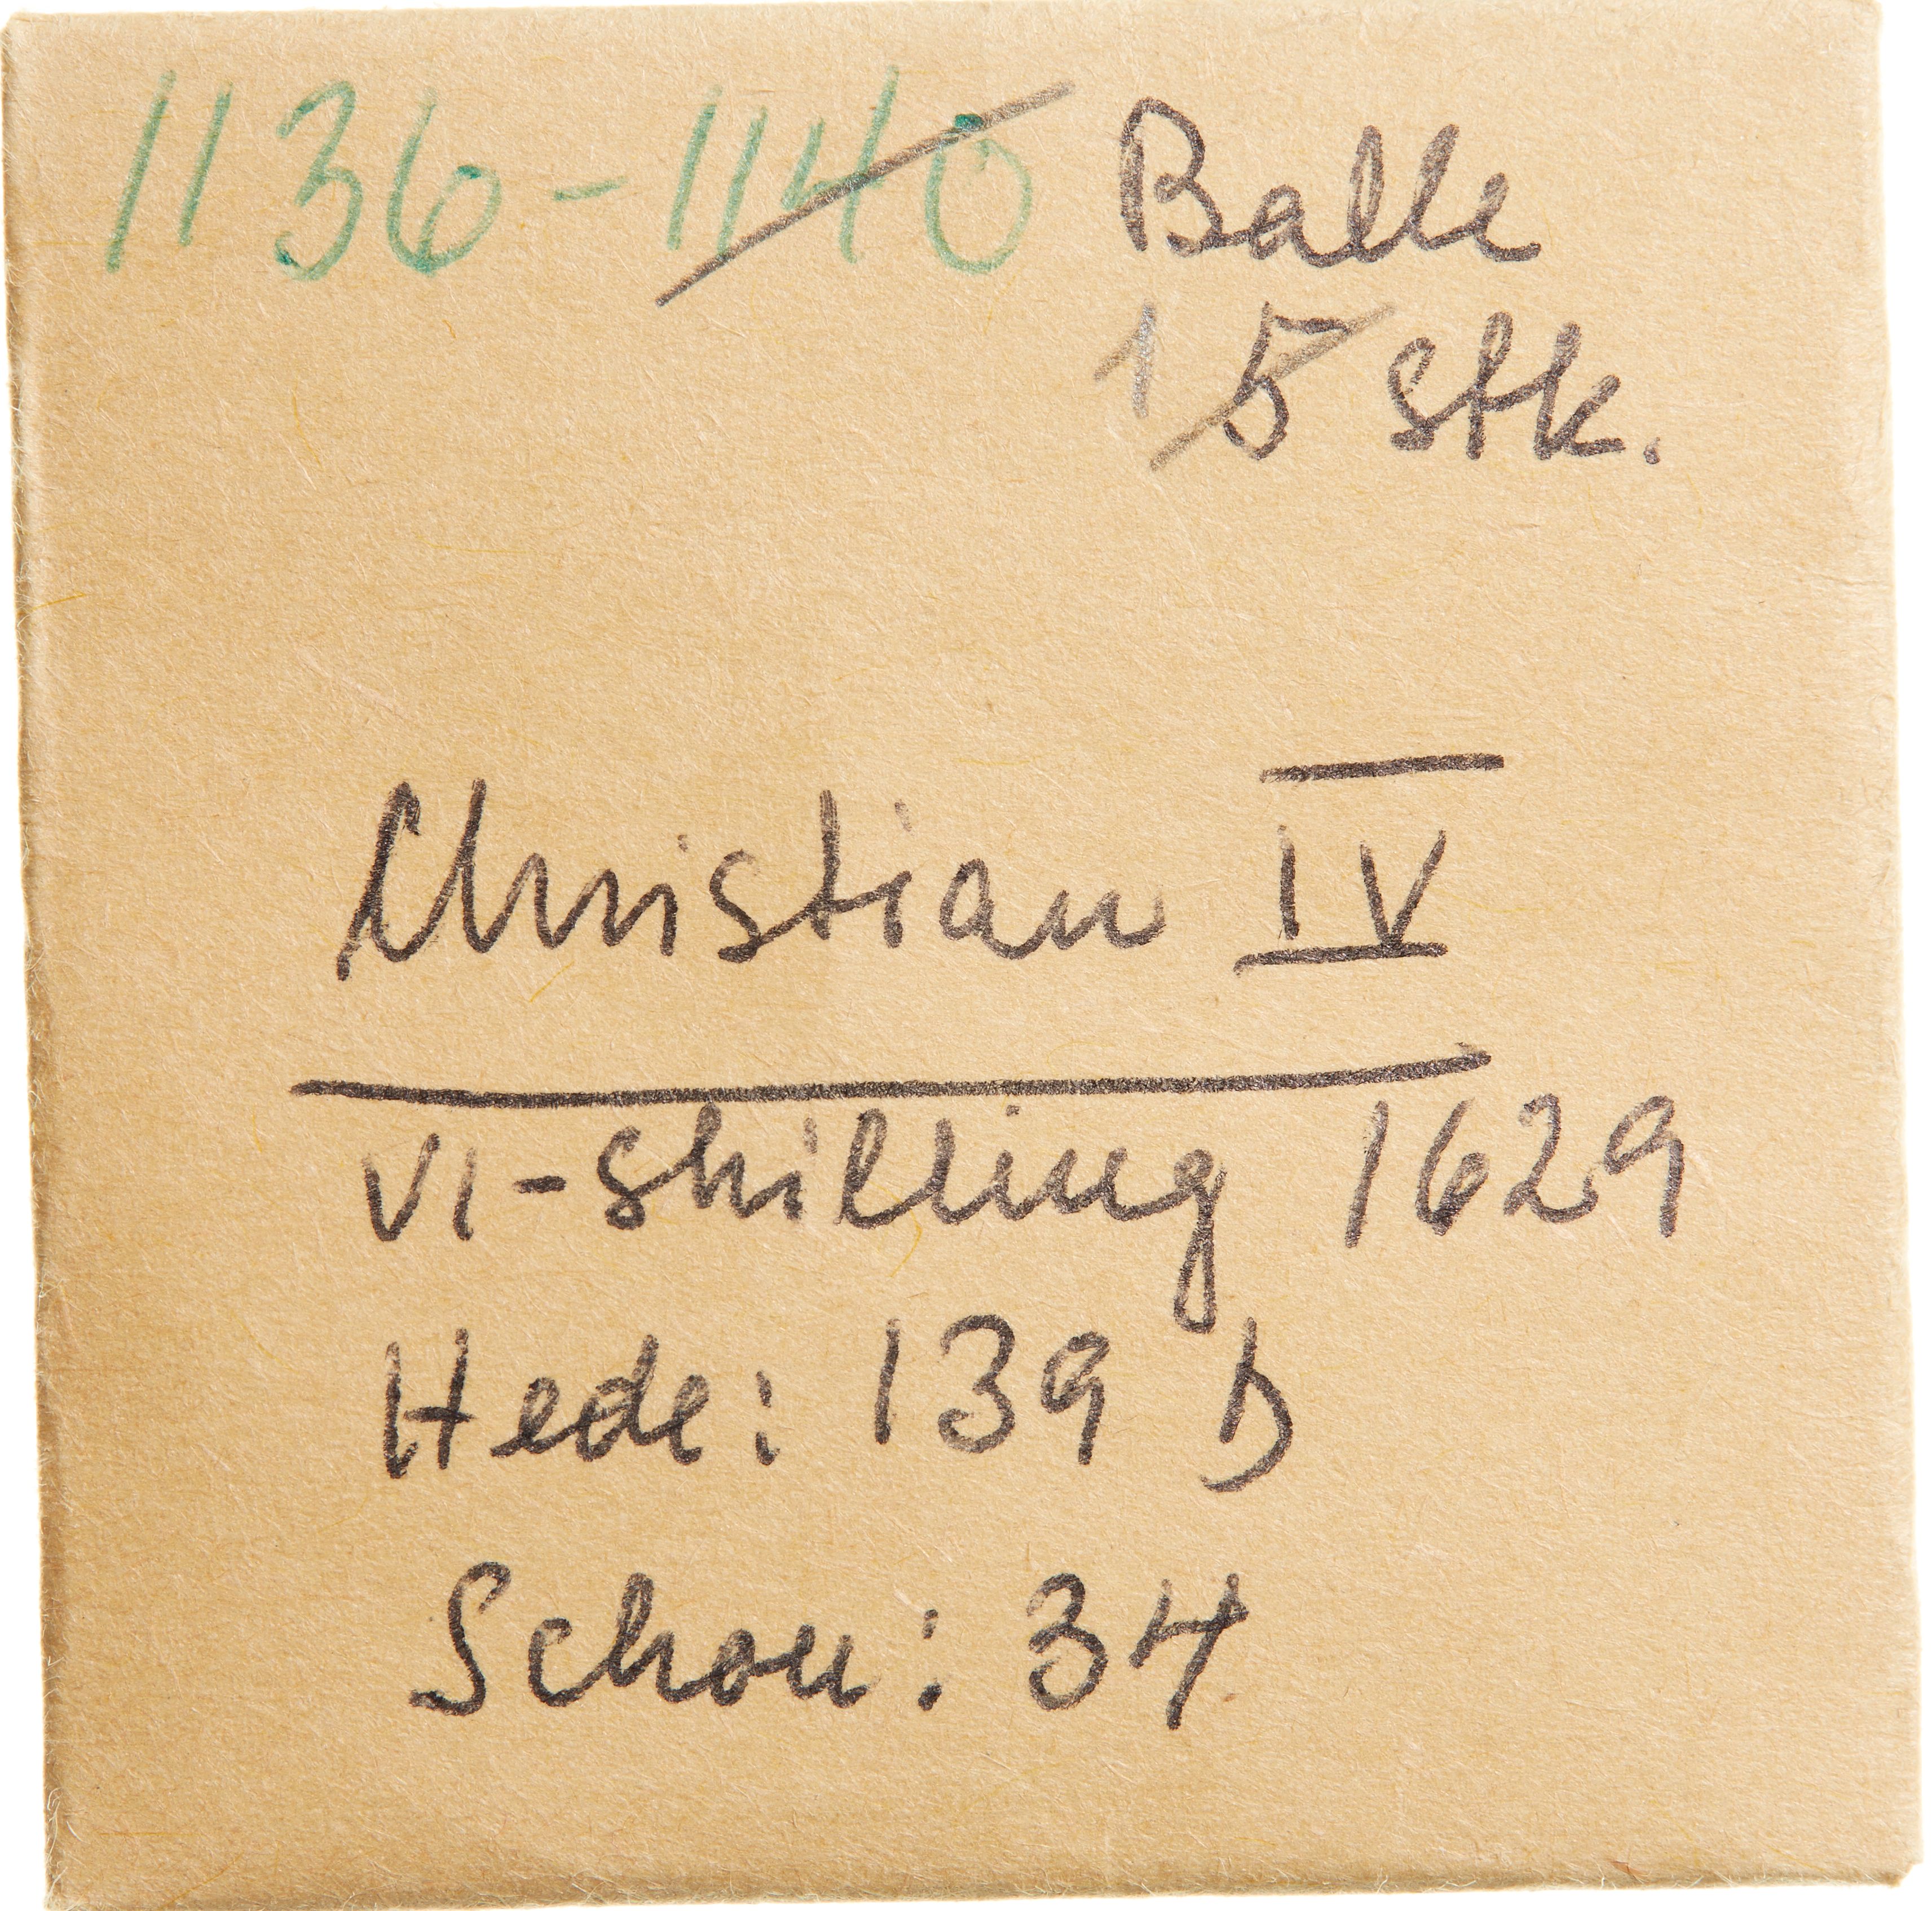 1136-1140 Balle
1 5 stk.
Christian IV
VI-shilling 1629
Hede: 139 D
Schou: 34